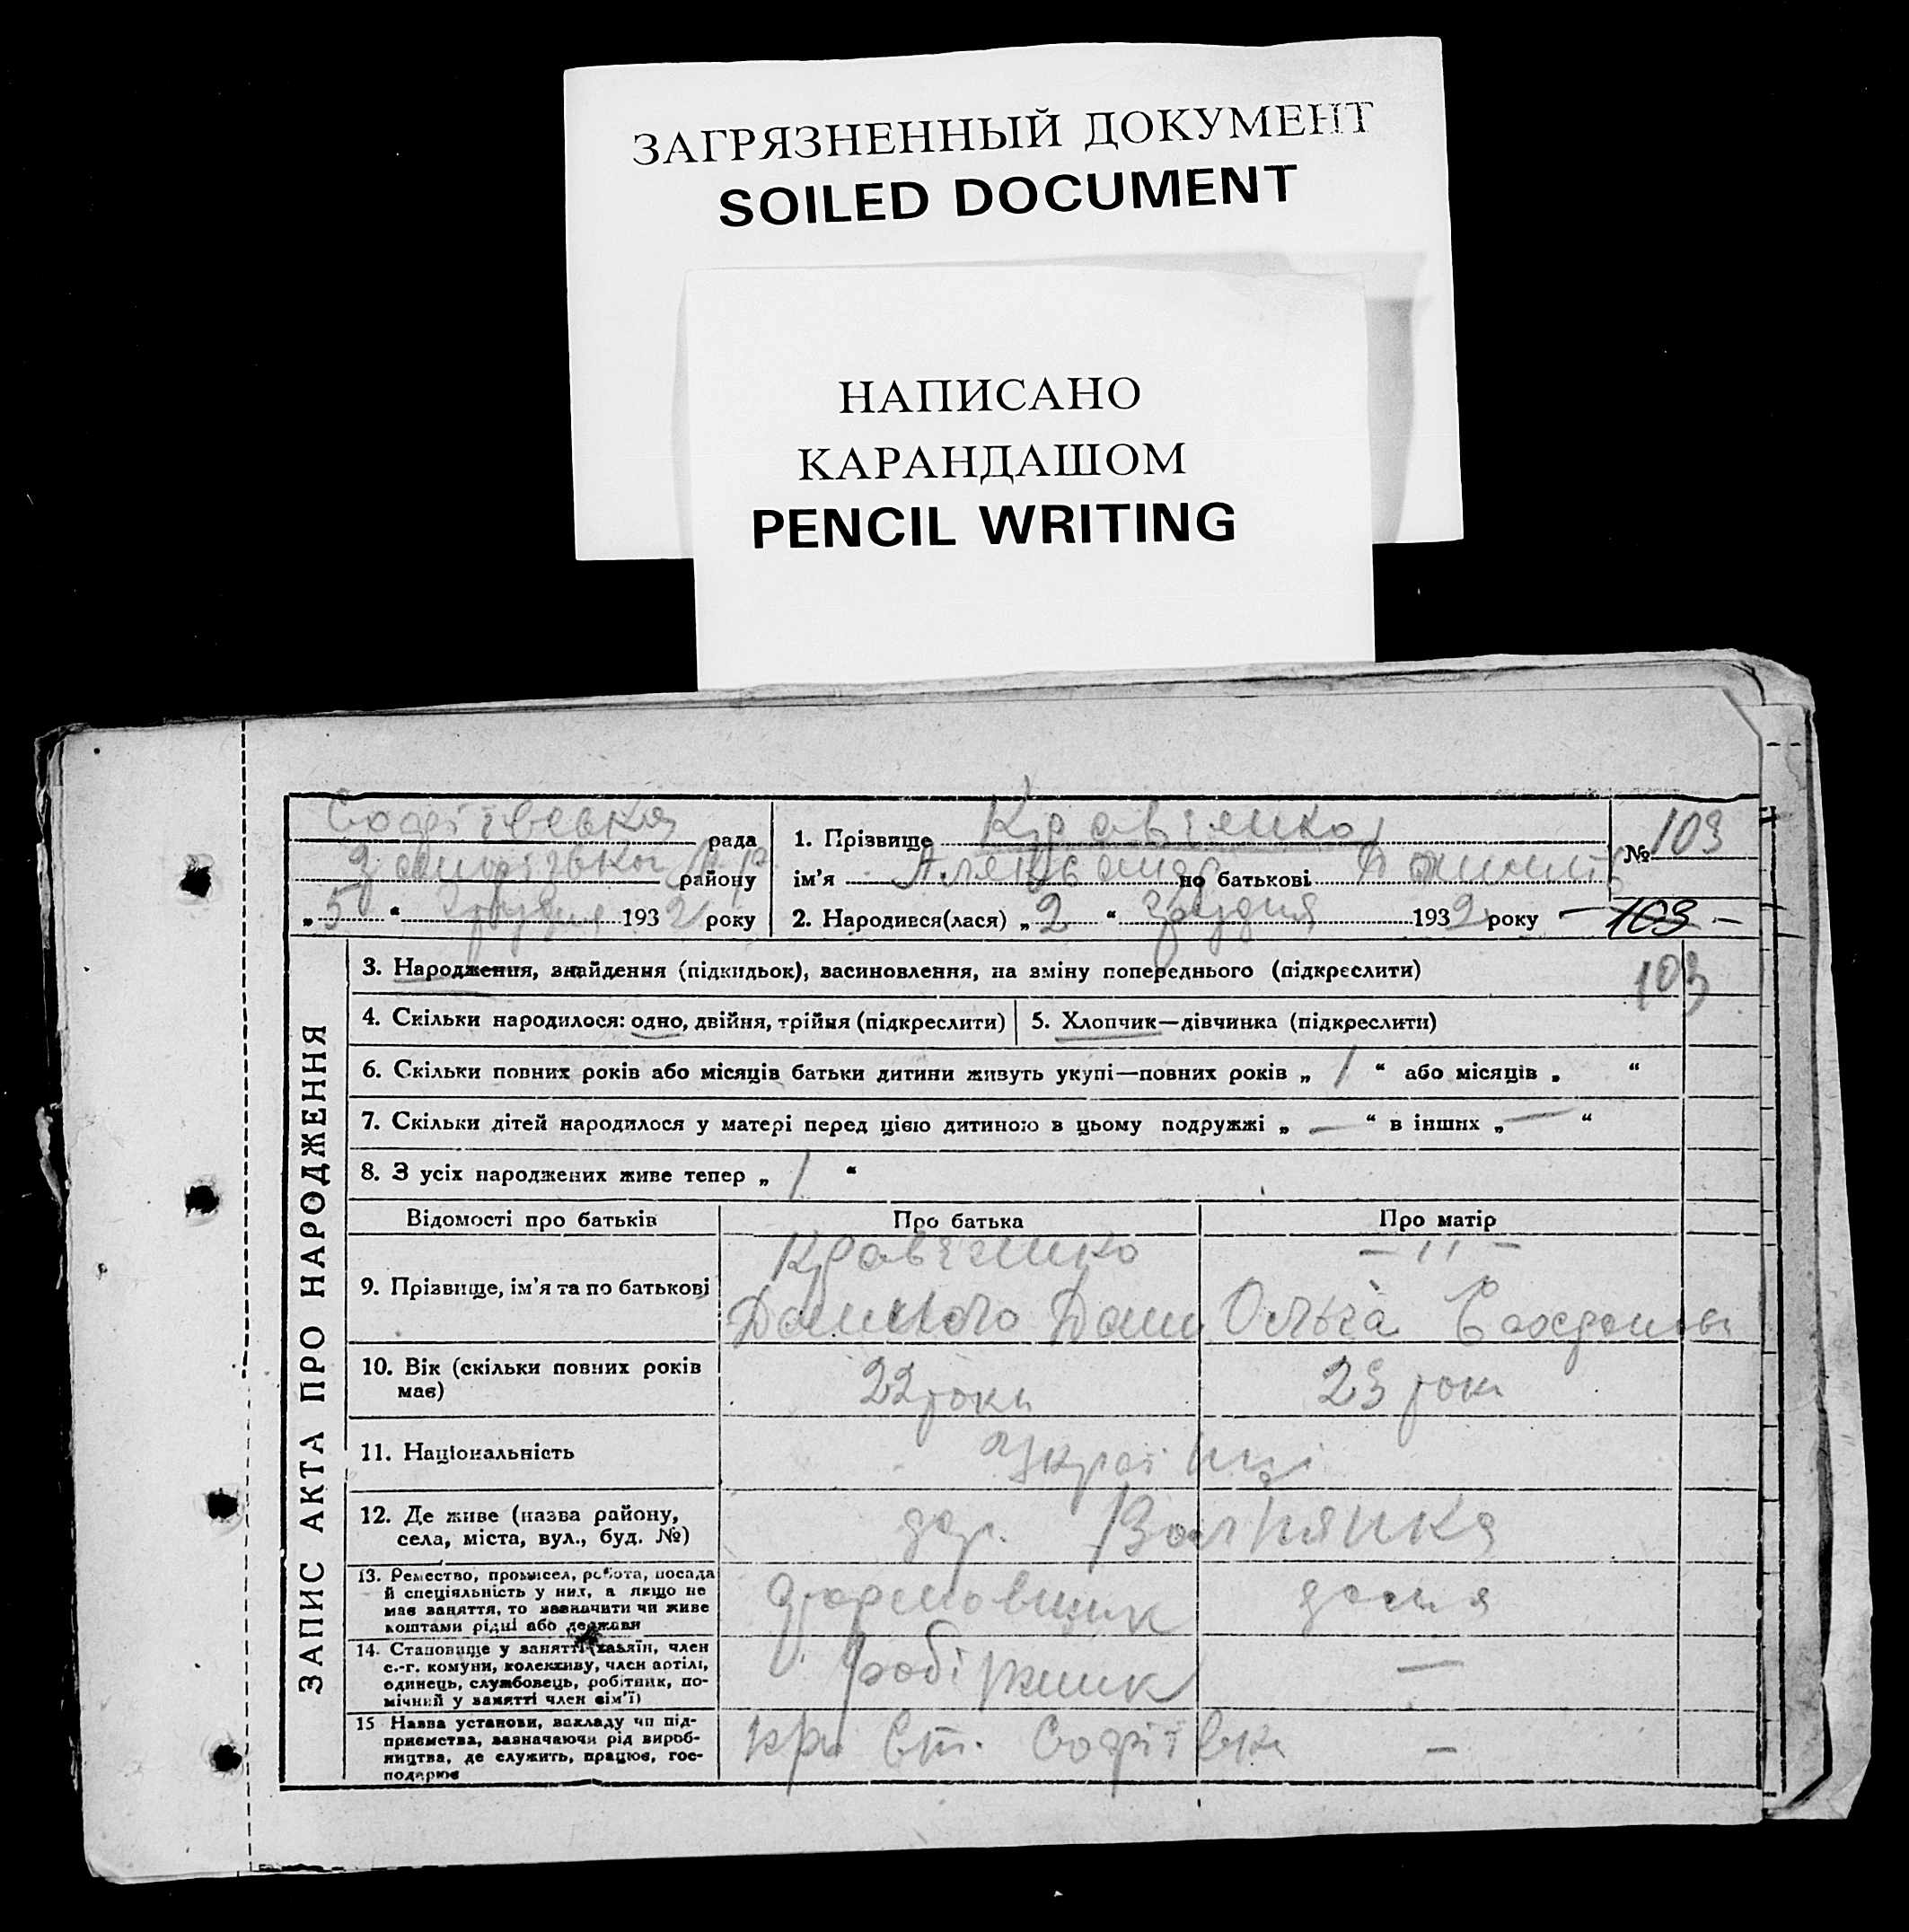 ЗАГРЯЗНЕННЫЙ ДОКУМЕНТ
SOILED DOCUMENT
НАПИСАНО
КАРАНДАШОМ
PENCIL WRITING
Софіївська рада
району
„ 5 “ грудня 1932 року
1. Прізвище Кравченко
ім'я Александр по батькові
2. Народився(лася) „ 2 “ грудня 1932 року
№ 103
103
103
ЗАПИС АКТА ПРО НАРОДЖЕННЯ
3. Народження, знайдення (підкидьок), засиновлення, на зміну попереднього (підкреслити)
4. Скільки народилося: одно, двійня, трійня (підкреслити)
5. Хлопчик—дівчинка (підкреслити)
6. Скільки повних років або місяців батьки дитини живуть укупі—повних років „ 1 “ або місяців „ “
7. Скільки дітей народилося у матері перед цією дитиною в цьому подружжі „ — “ в інших „ — “
8. З усіх народжених живе тепер „ 1 “
Відомості про батьків
Про батька
Про матір
9. Прізвище, ім'я та по батькові
Кравченко
— ,, —
Ольга
10. Вік (скільки повних років
має)
22 роки
23 роки
11. Національність
Українці
12. Де живе (назва району,
села, міста, вул., буд. №)
13. Ремество, промисел, робота, посада
й спеціяльність у них, а якщо не
має заняття, то зазначити чи живе
коштами рідні або держави
формовщик
дома
14. Становище у занятті (хазяїн, член
с.-г. комуни, колективу, член артілі,
одинець, службовець, робітник, по-
мічний у занятті член сім'ї)
робітник
—
15 Назва установи, закладу чи під-
приємства, зазначаючи рід вироб-
ництва, де служить, працює, гос-
подарює
ст. Софіївка
—